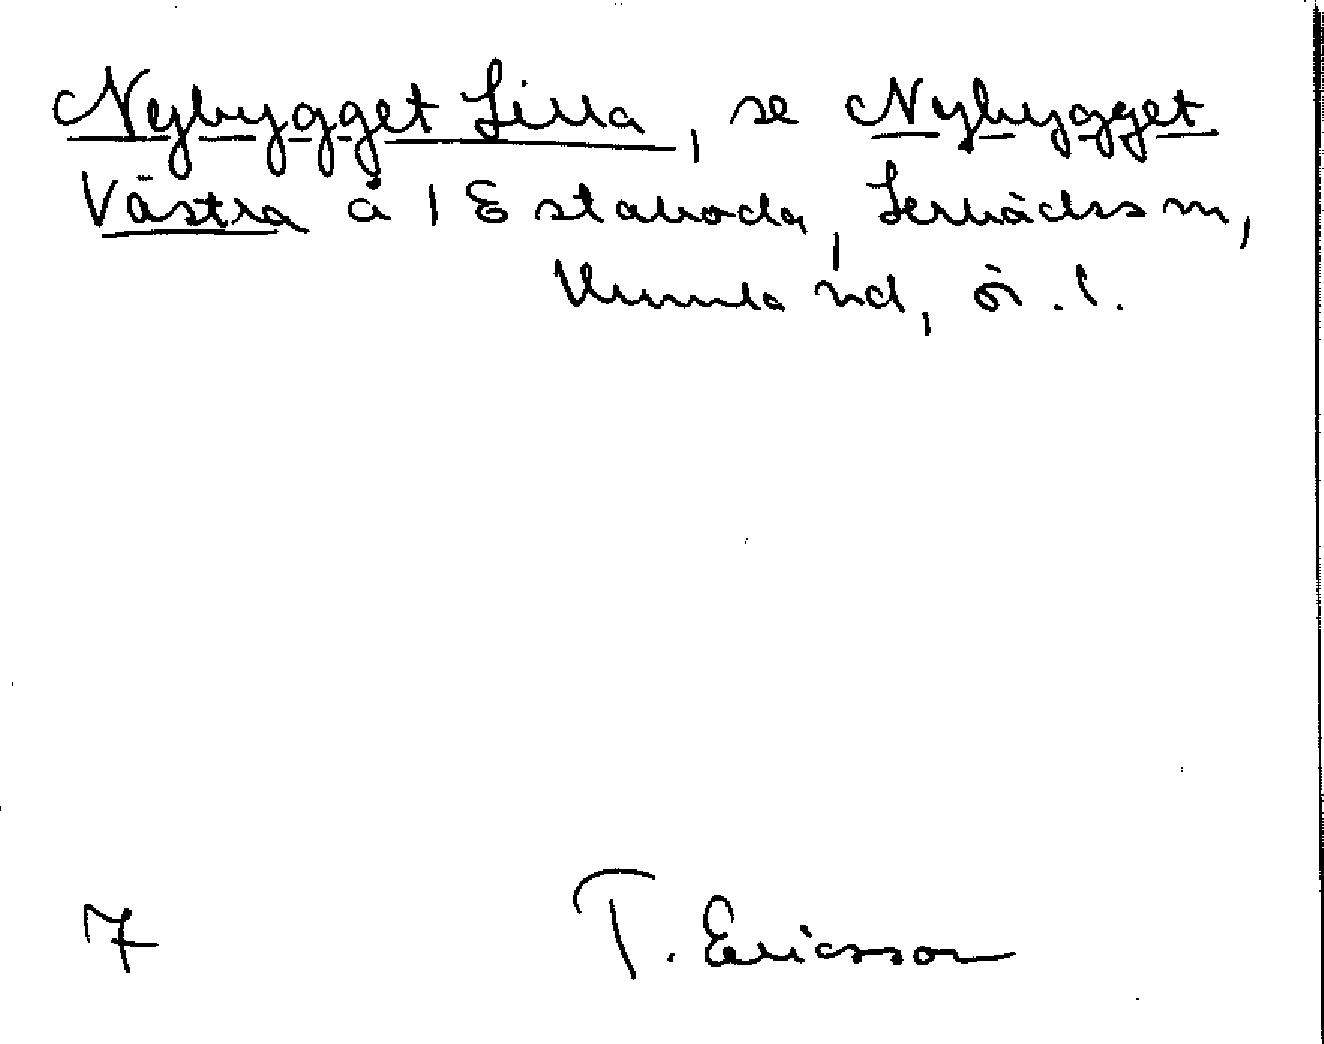 Nybygget Lilla, se Nybygget
Västra å 1 Estaboda, Lerbäcks sn,
Kumla hd, ör. l.
7 T. Ericsson